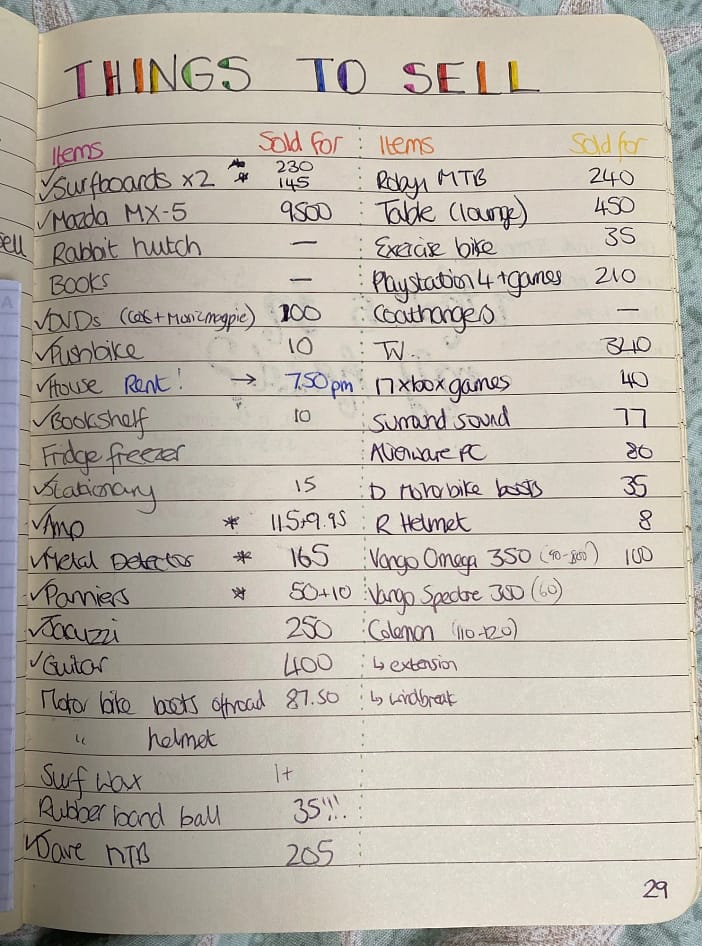 THINGS TO SELL
Items Sold for Items Sold for
✓Surfboards x2 * 230 145 Robyn MTB 240
✓Mazda MX-5 9500 Table (lounge) 450
Rabbit hutch — Exercise bike 35
Books — Playstation 4 + games 210
✓DVDs (CeX + Musicmagpie) 100 Coathangers —
✓Pushbike 10 TV. 340
✓House Rent! → 750pm 17 xbox games 40
✓Bookshelf 10 Surround sound 77
Fridge freezer Alienware PC 80
✓Stationary 15 D Motorbike boots 35
✓Amp * 115+9.95 R Helmet 8
✓Metal Detector * 165 Vango Omega 350 100
✓Panniers * 50+10 Vango Spectre 300 (60)
✓Jacuzzi 250 Coleman (110-120)
✓Guitar 400 ↳ extension
Motor bike boots offroad 87.50 ↳ windbreak
" helmet
Surf Wax 1+
Rubber band ball 35!!!
✓Dave MTB 205
29
sell
A